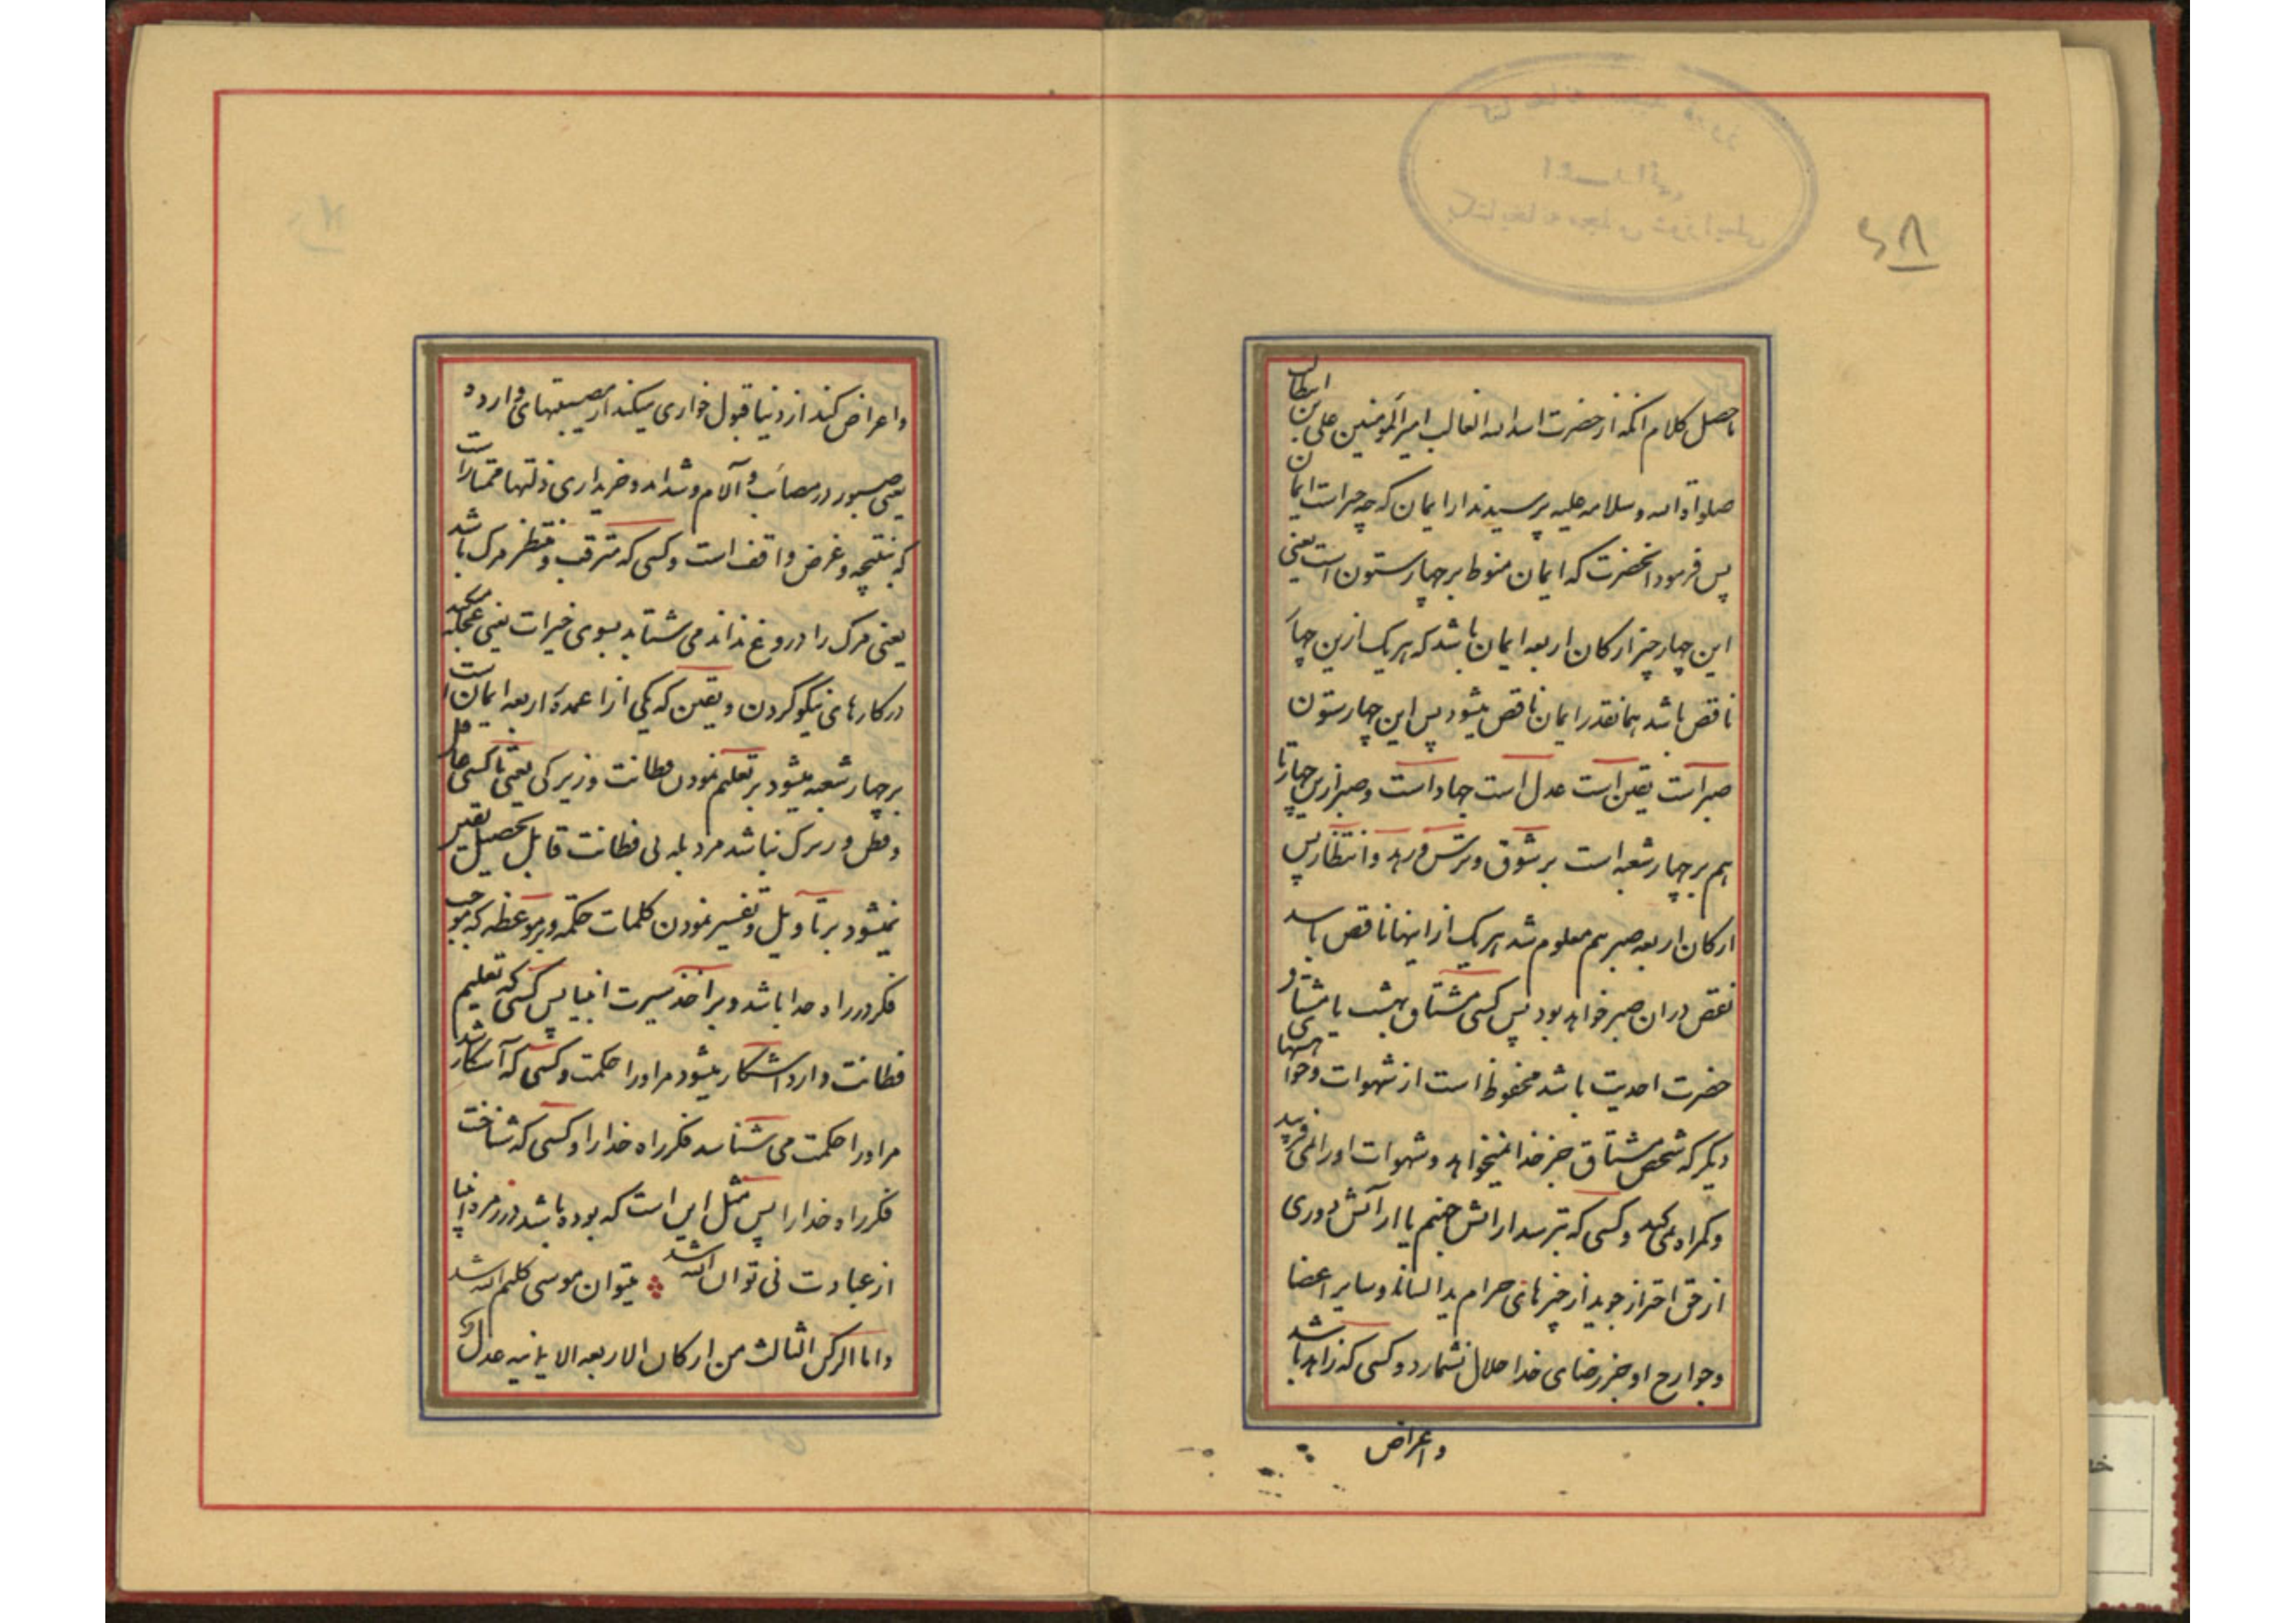 ماحصل کلام انکه از حضرت اسد الله الغالب امیر المومنین علی بن ابیطالب
صلواة الله وسلامه علیه پرسیدند از ایمان که چه چیز است ایمان
پس فرمود انحضرت که ایمان منوط بر چهار ستون است یعنی
این چهار چیز ارکان اربعه ایمان باشد که هریک ازین چهار
ناقص باشد همانقدر ایمان ناقص میشود پس این چهار ستون
صبر است یقین است عدل است جهاد است و صبر ازین چهارتا
هم بر چهار شعبه است بر شوق و ترس و زهد و انتظار پس
ارکان اربعه صبر هم معلوم شد هریک از اینها ناقص باشد
نقص دران صبر خواهد بود پس کسی مشتاق بهشت یا مشتاق
حضرت احدیت باشد محفوظ است از شهوات وخواهشهای
دیگر که شخص مشتاق جز خدا نمیخواهد و شهوات اورا نمی فریبد
وگمراه نمی کند وکسی که بترسد از اتش جهنم یا از آتش دوری
از حق احتراز جوید از چیزهای حرام ید السانه وسایر اعضا
وجوارح او جز رضای خدا حلال نشمارد وکسی که زاهد باشد
واعراض
۶۸
واعراض کند از دنیا قبول خواری میکند از مصیبتهای وارده
یعنی صبور در مصائب و آلام و شداید و خریداری ذلتها مختار است
که بنتیجه و غرض واقف است وکسی که مترقب و منتظر مرک باشد
یعنی مرک را دروغ نداند می شتابد بسوی خیرات یعنی عجله میکند
در کارهای نیکو کردن و یقین که یکی از اعمدهٔ اربعه ایمان است
بر چهار شعبه میشود بر تعلیم نمودن فطانت وزیرکی یعنی تا کسی عاقل
وفطن و زیرک نباشد مرد بله بی فطانت قابل تحصیل یقین
نمیشود بر تاویل و تفسیر نمودن کلمات حکمة وبر موعظه که موجب
فکر در راه خدا باشد و بر اخذ سیرت انبیا پس کسی که تعلیم
فطانت دارد اشکار میشود مراورا حکمت وکسی که آشکار شد
مراورا حکمت می شناسد فکر راه خدا را وکسی که شناخت
فکر راه خدا را پس مثل این است که بوده باشد در زمره انبیا
از عبادت نی توان الله شد میتوان موسی کلیم الله شد
واما الرکن الثالث من ارکان الاربعه الایمانیه عدل